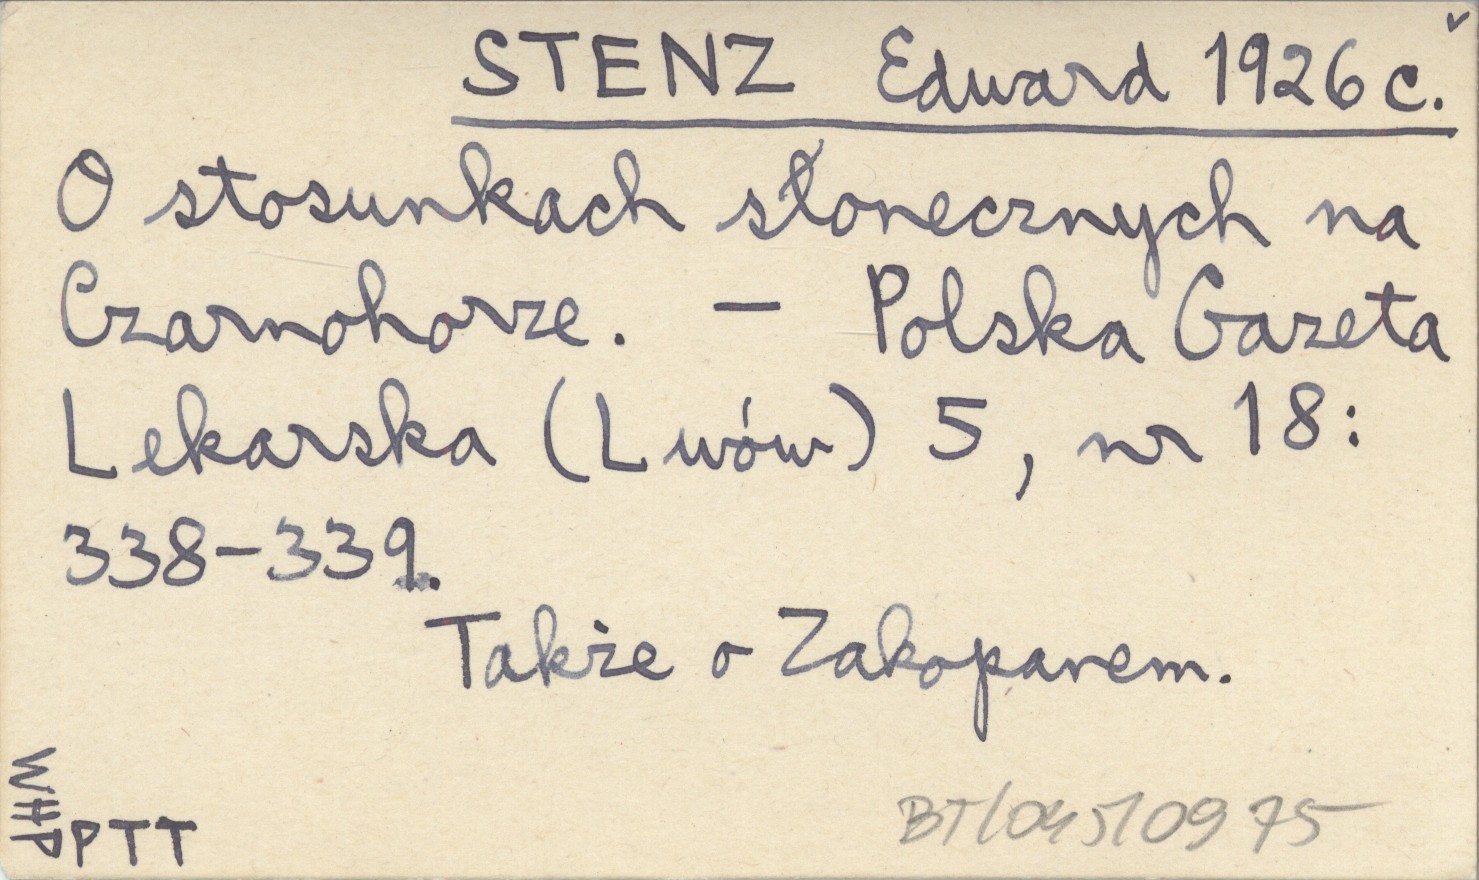 STENZ Edward 1926 c.
O stosunkach słonecznych na
Czarnohorze. – Polska Gazeta
Lekarska (Lwów) 5, nr 18:
338-339.
Także o Zakopanem.
WHP
PTT
BT/045/0975